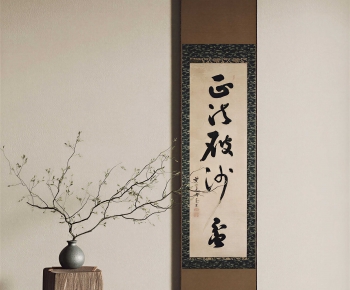 正法破沙盆